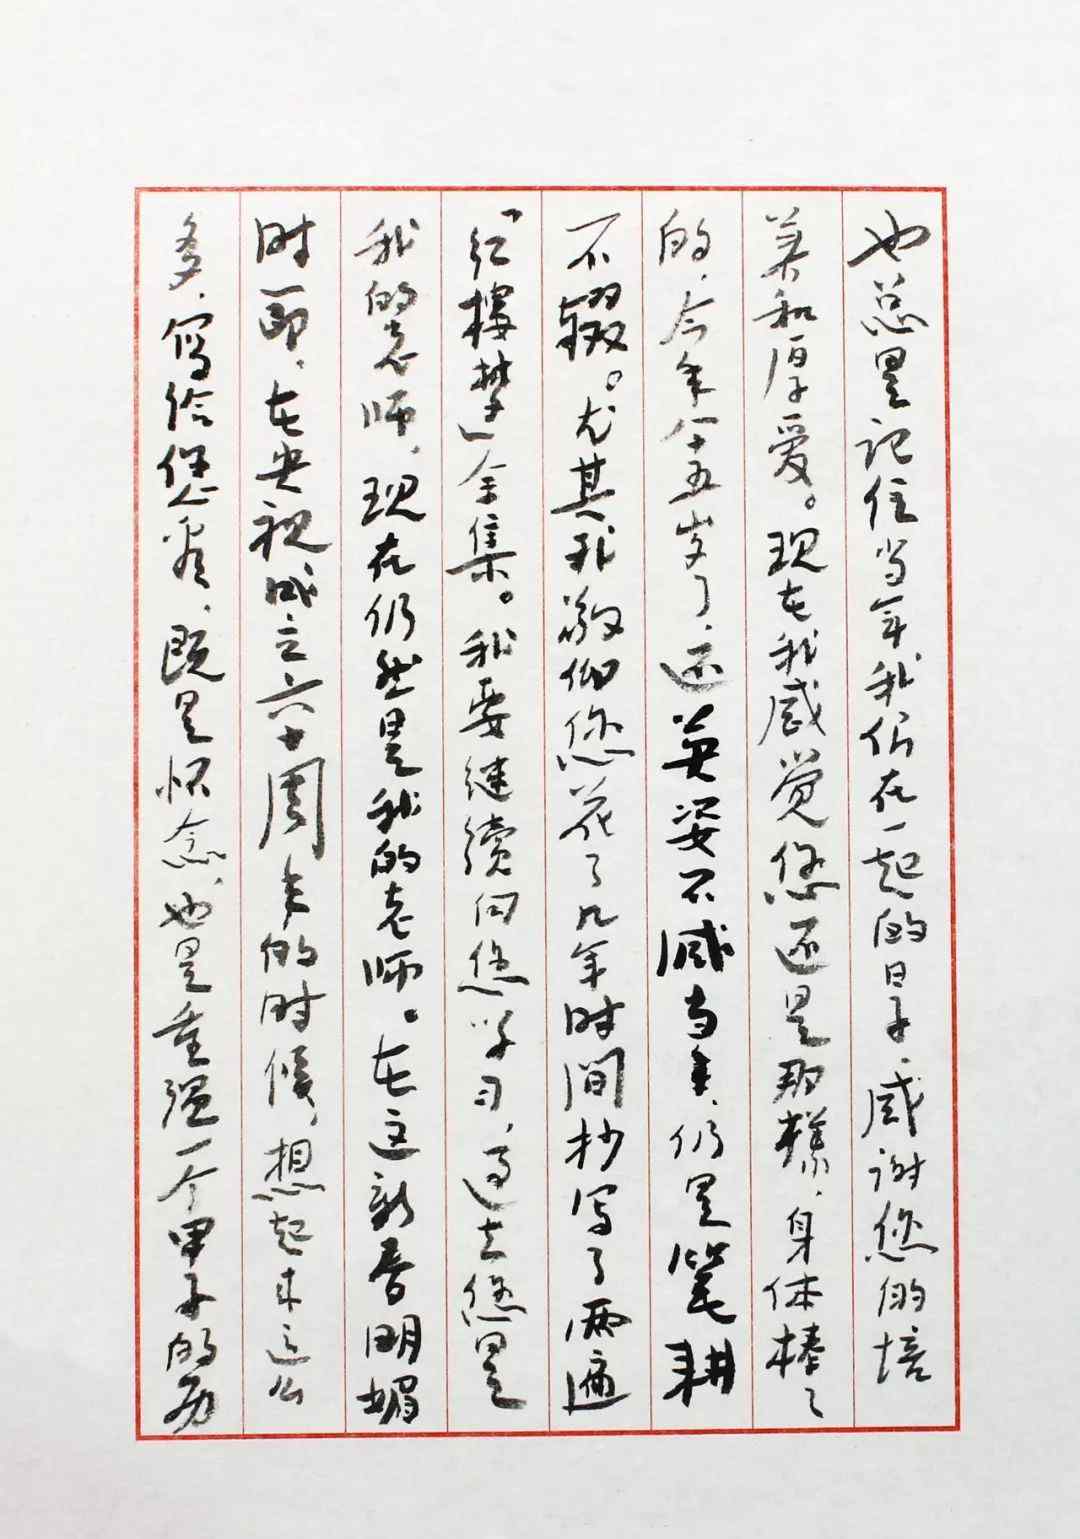 也总是记住当年我们在一起的日子、感谢您的培
养和厚爱。现在我感觉您还是那样、身体棒々
的、今年八十五岁了、还英姿不减当年、仍是笔耕
不辍。尤其我敬仰您花了几年时间抄写了两遍
「红樓梦」全集。我要继续向您学习、过去您是
我的老师、现在仍然是我的老师。在这新春明媚
时节、在央视成立六十周年的时候、想起来这么
多、寫给您看、既是怀念、也是重温一个甲子的历